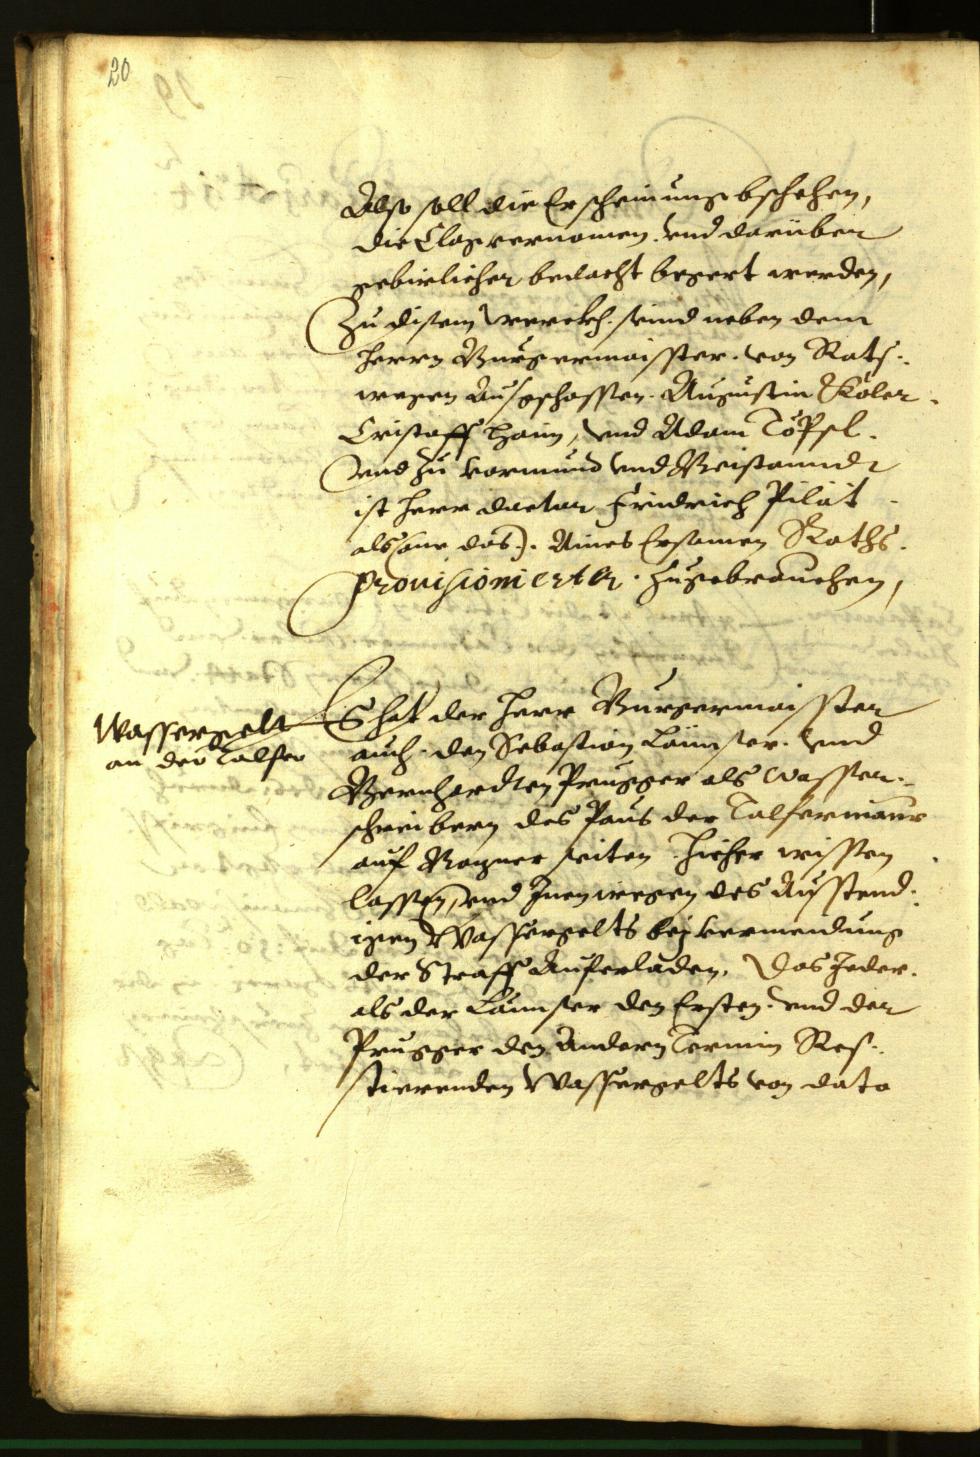 20
Also soll die Erscheinung bschehen,
die Clag vernomen. vnd darüber
gebirlicher bedacht begert werden,
Zu disem werckh. seind neben dem
Herrn Burgermaister. von Rats.
wegen Ausgschossen. Augustin Köler.
Cristoff Haim, vnd Adam Töpsl.
vnd zu vormund vnd Beistanndt
ist Herr doctor Fridrich Pilät
als (one das). Aines Ersamen Raths.
provisionierter. zugebrauchen,
Wassergelt
an der Talfer
Es hat der Herr Burgermaister
auch. den Sebastian Laimser. vnd
Bernhardten Prugger als wasser-
schreibern des Paus der Talfermaur
auf Bozner seiten hieher wissen
lassen, vnd Inen wegen des Ausstend-
igen Wassergelts bej vermeidung
der Straff Auferladen, Das Jeder.
als der Laimser den Ersten. vnd der
Prugger den Andern Termin Res-
tierenden Wassergelts von dato